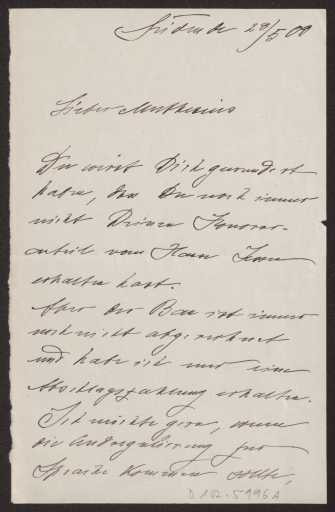 28/5 00
Lieber Muthesius
Du wirst Dich gewundert
haben, dass Du noch immer
nicht Deinen Honorar-
anteil vom Haus
erhalten hast.
Aber der Bau ist immer
noch nicht abgerechnet
und habe ich nur eine
Abschlagszahlung erhalten.
Ich möchte gern, wenn
die Andregulierung zur
Sprache kommen sollte,
D 102-5996A